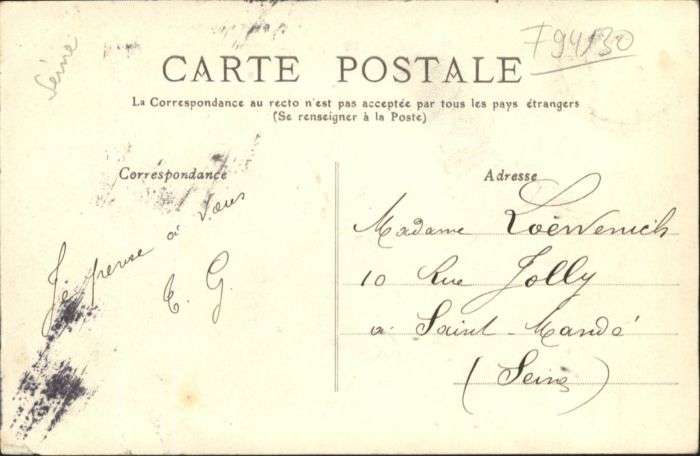 Seine
F94130
CARTE POSTALE
La Correspondance au recto n'est pas acceptée par tous les pays étrangers
(Se renseigner à la Poste)
Correspondance
Je pense à vous
E. G.
Adresse
Madame Loëwenich
10 Rue Jolly
a Saint-Mandé
(Seine)